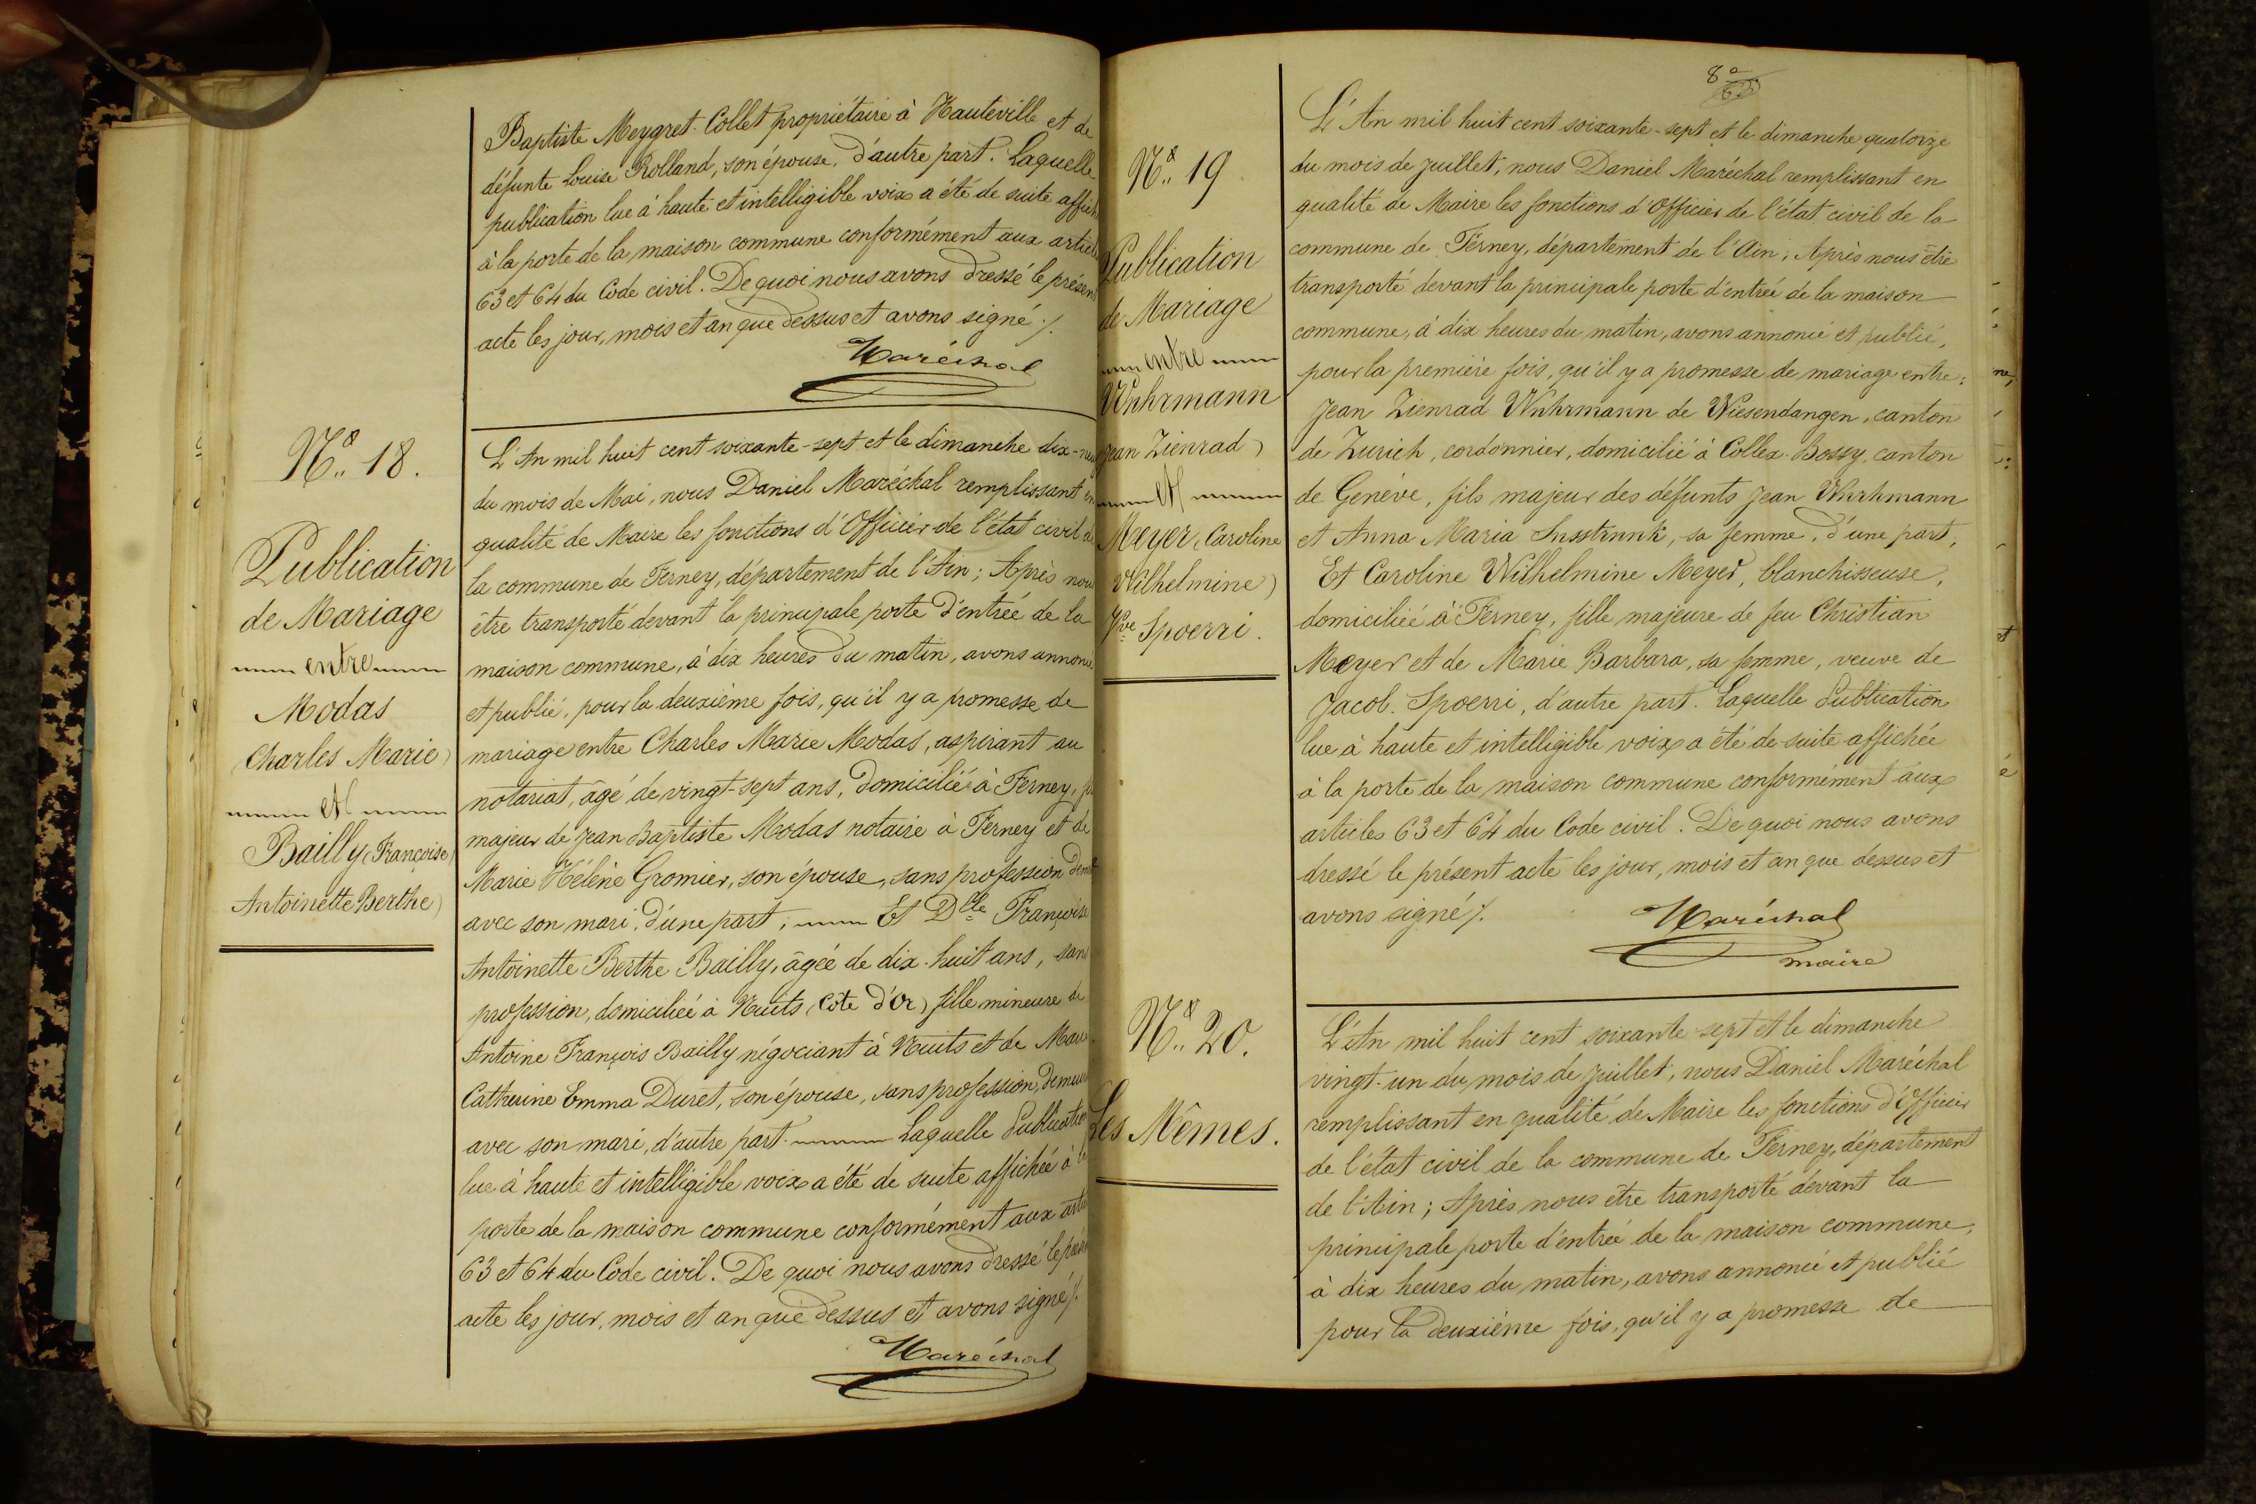 Baptiste Meygret-Collet propriétaire à Hauteville et de
défunte Louise Rolland, son épouse, d'autre part. Laquelle
publication lue à haute et intelligible voix a été de suite affich
à la porte de la maison commune conformément aux articl
63 et 64 du Code civil. De quoi nous avons dressé le présen
acte les jour, mois et an que dessus et avons signé ./.
Maréchal
N.° 18.
Publication
de Mariage
entre
Modas
(Charles Marie)
et
Bailly (Françoise
Antoinette Berthe)
L'An mil huit cent soixante-sept et le dimanche dix-neuf
du mois de Mai, nous Daniel Maréchal remplissant en
qualité de Maire les fonctions d'Officier de l'état civil de
la commune de Ferney, département de l'Ain ; Après nous
être transporté devant la principale porte d'entrée de la
maison commune, à dix heures du matin, avons annoncé
et publié, pour la deuxième fois, qu'il y a promesse de
mariage entre Charles Marie Modas, aspirant au
notariat, âgé de vingt-sept ans, domicilié à Ferney, fi
majeur de Jean Baptiste Modas notaire à Ferney et de
Marie Hélène Gromier, son épouse, sans profession demt
avec son mari, d'une part ; Et Dlle Françoise
Antoinette Berthe Bailly, âgée de dix-huit ans, sans
profession, domiciliée à Nuits (Côte d'Or) fille mineure de
Antoine François Bailly négociant à Nuits et de Marie
Catherine Emma Duret, son épouse, sans profession, demeur
avec son mari, d'autre part. Laquelle Publication
lue à haute et intelligible voix a été de suite affichée à la
porte de la maison commune conformément aux arti
63 et 64 du Code civil. De quoi nous avons dressé le présen
acte les jour, mois et an que dessus et avons signé ./.
Maréchal
8
N.° 19
Publication
de Mariage
entre
Wuhrmann
(Jean Zienrad)
et
Meyer (Caroline
Wilhelmine)
Vve Spoerri.
L'An mil huit cent soixante-sept et le dimanche quatorze
du mois de Juillet, nous Daniel Maréchal remplissant en
qualité de Maire les fonctions d'Officier de l'état civil de la
commune de Ferney, département de l'Ain ; Après nous être
transporté devant la principale porte d'entrée de la maison
commune, à dix heures du matin, avons annoncé et publié,
pour la première fois, qu'il y a promesse de mariage entre :
Jean Zienrad Wuhrmann de Wiesendangen, canton
de Zurich, cordonnier, domicilié à Collex-Bossy, canton
de Genève, fils majeur des défunts Jean Whrhmann
et Anna Maria Susstrunk, sa femme, d'une part,
Et Caroline Wilhelmine Meyer, blanchisseuse,
domiciliée à Ferney, fille majeure de feu Christian
Meyer et de Marie Barbara, sa femme, veuve de
Jacob Spoerri, d'autre part. Laquelle Publication
lue à haute et intelligible voix a été de suite affichée
à la porte de la maison commune conformément aux
articles 63 et 64 du Code civil. De quoi nous avons
dressé le présent acte les jour, mois et an que dessus et
avons signé ./.
Maréchal
maire
N.° 20.
Les Mêmes.
L'An mil huit cent soixante sept et le dimanche
vingt-un du mois de Juillet, nous Daniel Maréchal
remplissant en qualité de Maire les fonctions d'Officier
de l'état civil de la commune de Ferney, département
de l'Ain ; Après nous être transporté devant la
principale porte d'entrée de la maison commune,
à dix heures du matin, avons annoncé et publié
pour la deuxième fois, qu'il y a promesse de